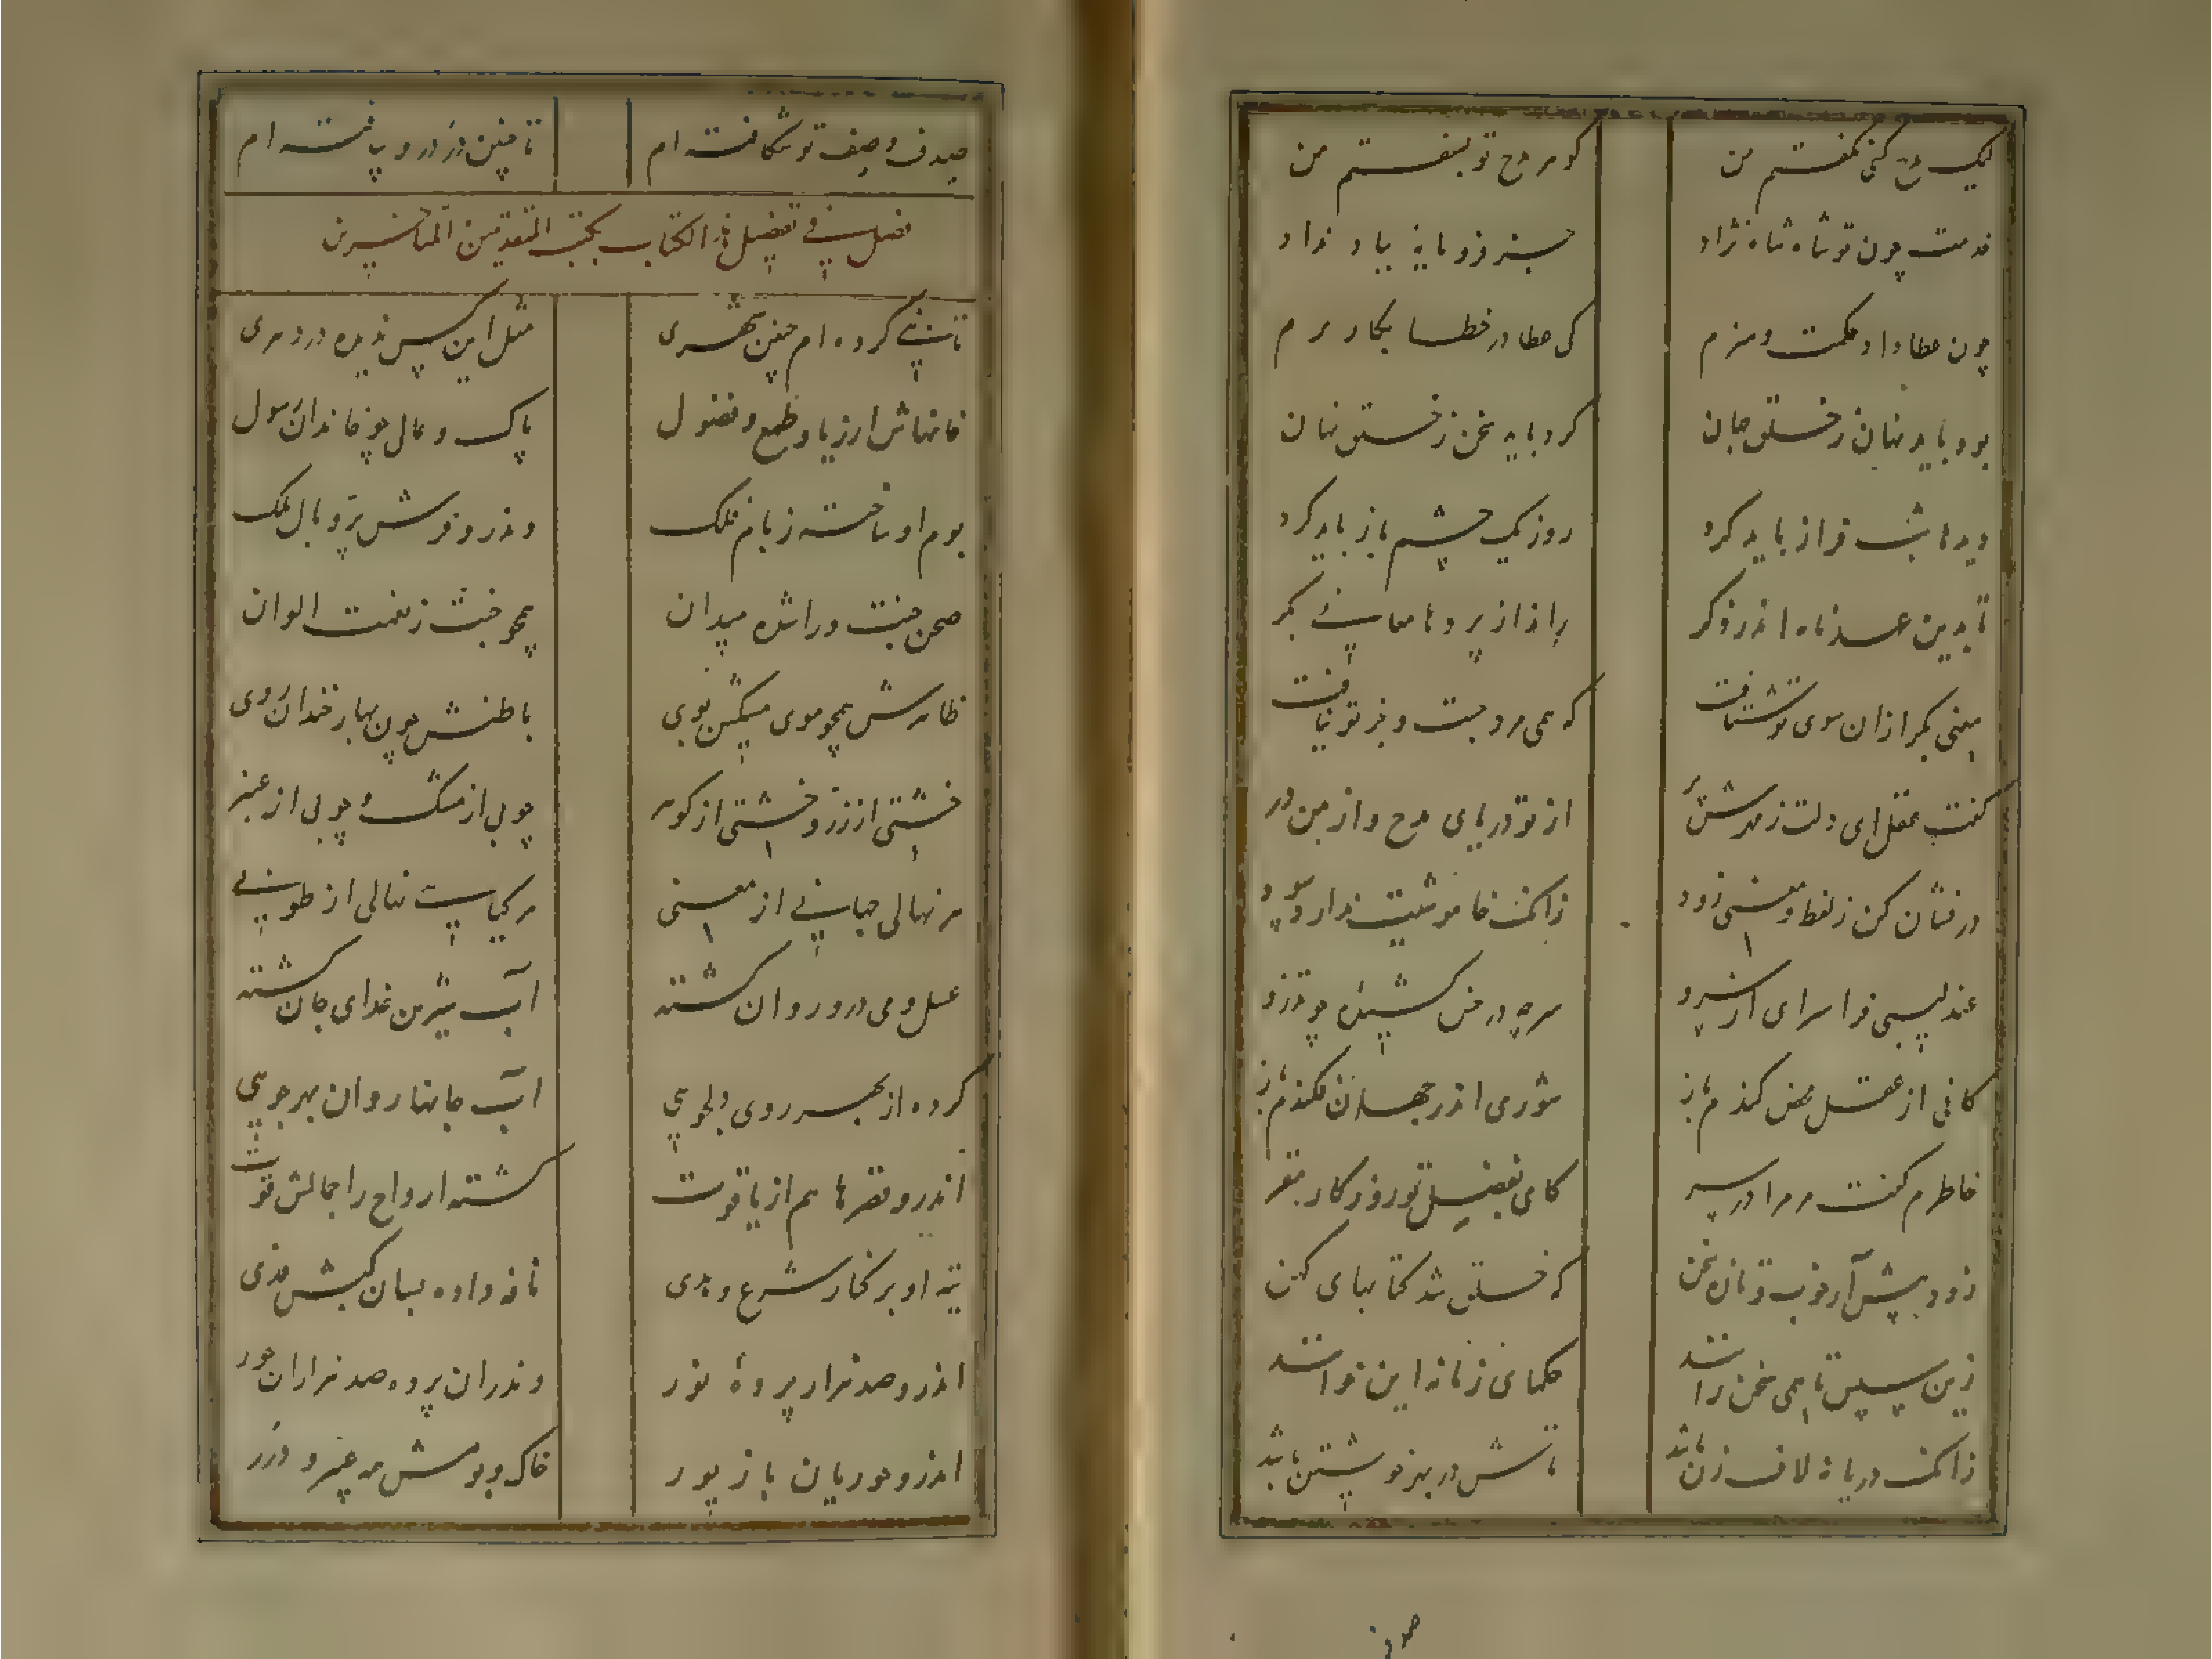 لیک مدح کسی نگفتم من گوهر مدح تو بسفتم من
خدمت چون تو شاه شاه نژاد جز فرومایه بباد نداد
چون عطا داد حکمت و حزم کی عطا در خطا بکار برم
بود باید نهان ز خلق جهان کرد باید سخن ز خلق نهان
دیدها شب فراز باید کرد روز یک چشم باز باید کرد
تا بدین عهدنامه اندر ذکر راند از پرده معانی بکر
معنی بکر از آن سوی تو شتافت که همی مرد جست و جز تو نیافت
گفت عقل ای دلت ز مهرش پر از تو دریای مدح و از من در
در فشان کن ز لفظ و معنی زود زانکت خاموشیت ندارد سود
عندلیبی نوا سرای از سرو سر چه در خس کشیده چو تذرو
کانی از عقل محض کندم باز شوری اندر جهان فکندم باز
خاطرم گفت مر مرا در سر کامی بفضل تو روزگار مقر
زود پیش آر خوب و تازه سخن که خلق شد کتابهای کهن
زین سپس تا همی سخن رانند حکمای زمانه این خوانند
زانکه دریا نه لاف زن باشد تابش در بهر خویشتن باشد
صدف
صدف وصف تو شکافته ام تا چنین در درو بیافته ام
فصل فی تفضیل هذا الکتاب بکتب المتقدمین المتأخرین
تاسیس کرده ام چنین شهری مثل این کس ندیده در دهری
خانهاش از زیاد طمع و فضول پاک و عالی چو خاندان رسول
بوم او ساخته ز بام فلک و ندرو فرش پر و بال ملک
صحن جنت ورا شده میدان همچو جنت ز نعمت الوان
ظاهرش همچو موی مشکین بوی باطنش چون بهار خندان روی
خشتی از زر و خشتی از گوهر چوبی از مشک و چوبی از عنبر
هر نهالی جهانی از معنی هر گیاییست نهالی از طوبی
عسل و می درو روان گشته آب شیرین غذای جان گشته
کرده از بهر روی دلجویی آب جانها روان بهر جویی
اندرو قصرها هم از یاقوت گشته ارواح را جمالش قوت
تیه او بر کنار شرع و هدی ناقه داده بسان کبش فدی
اندرو صد هزار پردهٔ نور و ندران پرده صد هزاران حور
اندرو حوریان با زیور خاک و بومش همه عنبر و درر